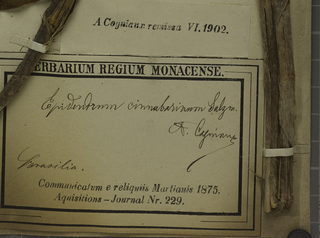 A Cogniaux revisa VI. 1902.
HERBARIUM REGIUM MONACENSE.
Epidendrum cinnabarinum Salzm.
A. Cogniaux
Brasilia.
Communicatum e reliquiis Martianis 1875.
Aquisitions – Journal Nr. 229.